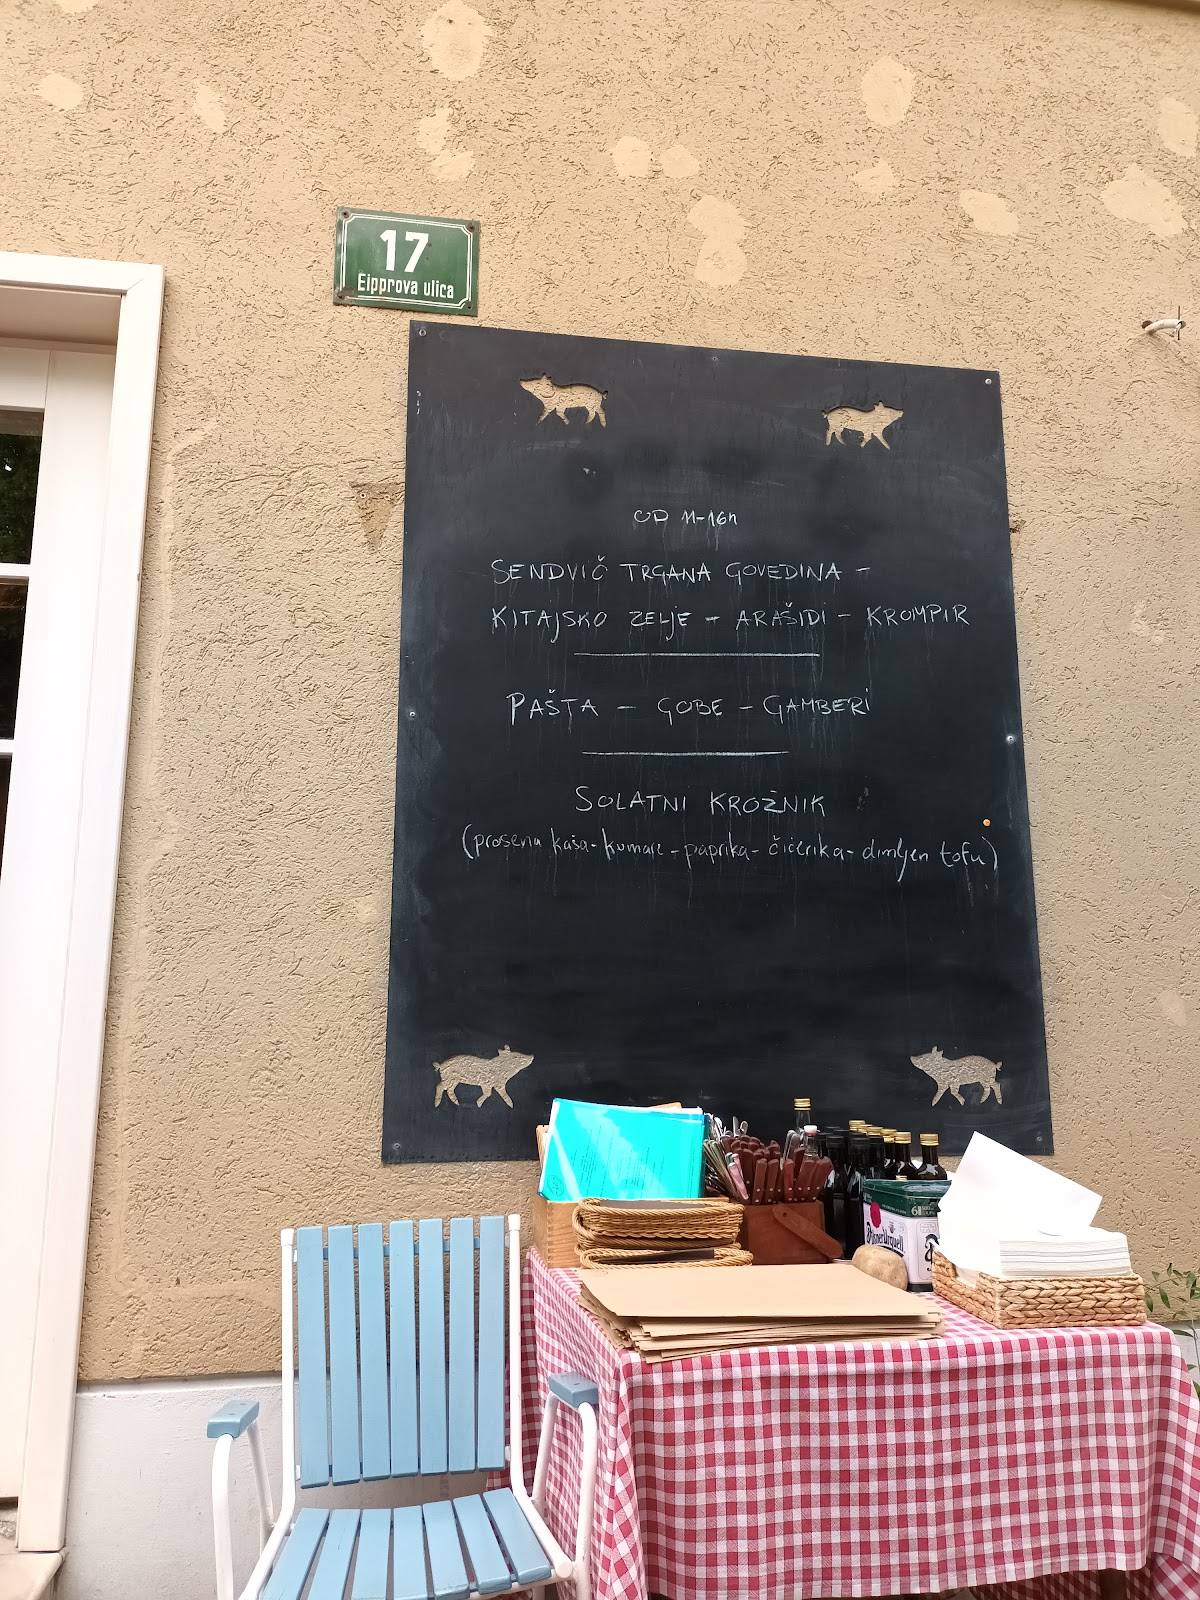 17
Eipprova ulica
OD 11-16h
SENDVIČ TRGANA GOVEDINA -
KITAJSKO ZELJE - ARAŠIDI - KROMPIR
PAŠTA - GOBE - GAMBERI
SOLATNI KROŽNIK
(prosena kaša - kumare - paprika - čičerika - dimljen tofu)
6
Pilsner Urquell